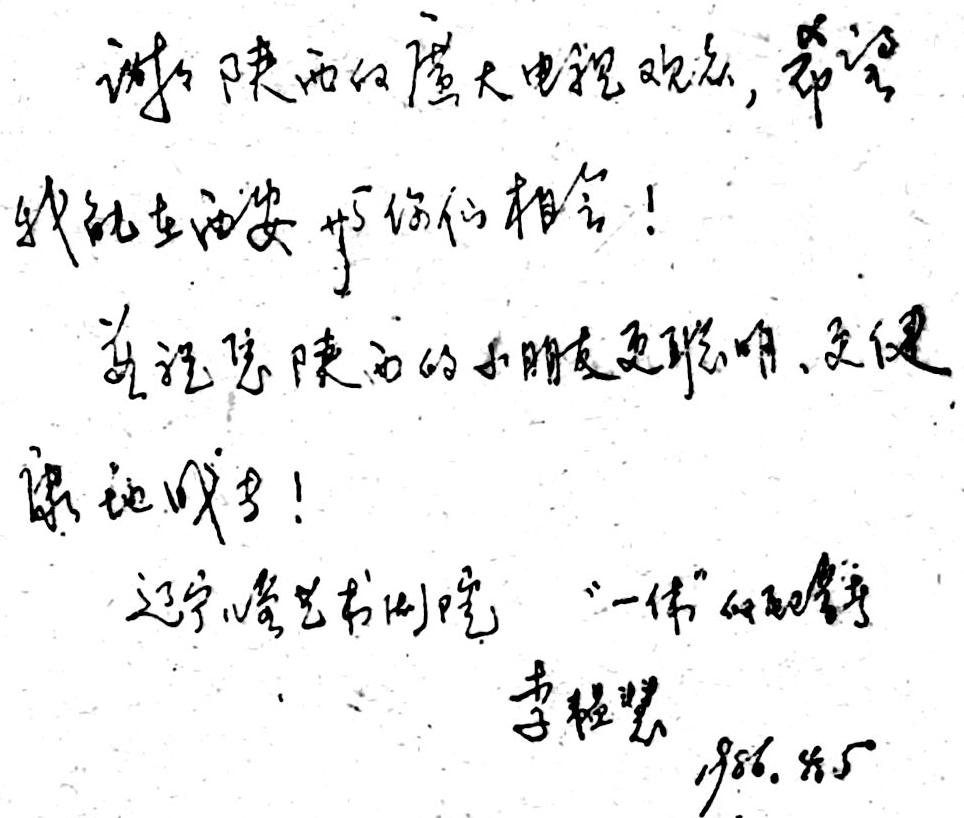 谢谢陕西的廣大电视观众,希望
我能在西安与你们相会!
并祝愿陕西的小朋友更聪明、更健
康地成长!
辽宁省艺术剧院 “一休”的配音者
李韫慧
1986.4.5